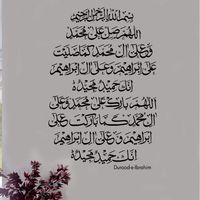 بسم الله الرحمن الرحيم
اللهم صل على محمد
وعلى آل محمد كما صليت
على إبراهيم وعلى آل إبراهيم
إنك حميد مجيد
اللهم بارك على محمد وعلى
آل محمد كما باركت على
إبراهيم وعلى آل إبراهيم
إنك حميد مجيد
Durood-e-Ibrahim